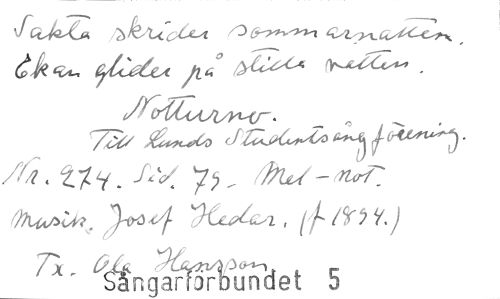 Sakta skrider sommarnatten.
Ekan glider på stilla vatten.
Notturno.
Till Lunds Studentsångförening.
Nr. 274. Sid. 79. Mel-not.
Musik. Josef Hedar. (f 1894.)
Tx. Ola Hansson
Sångarförbundet 5